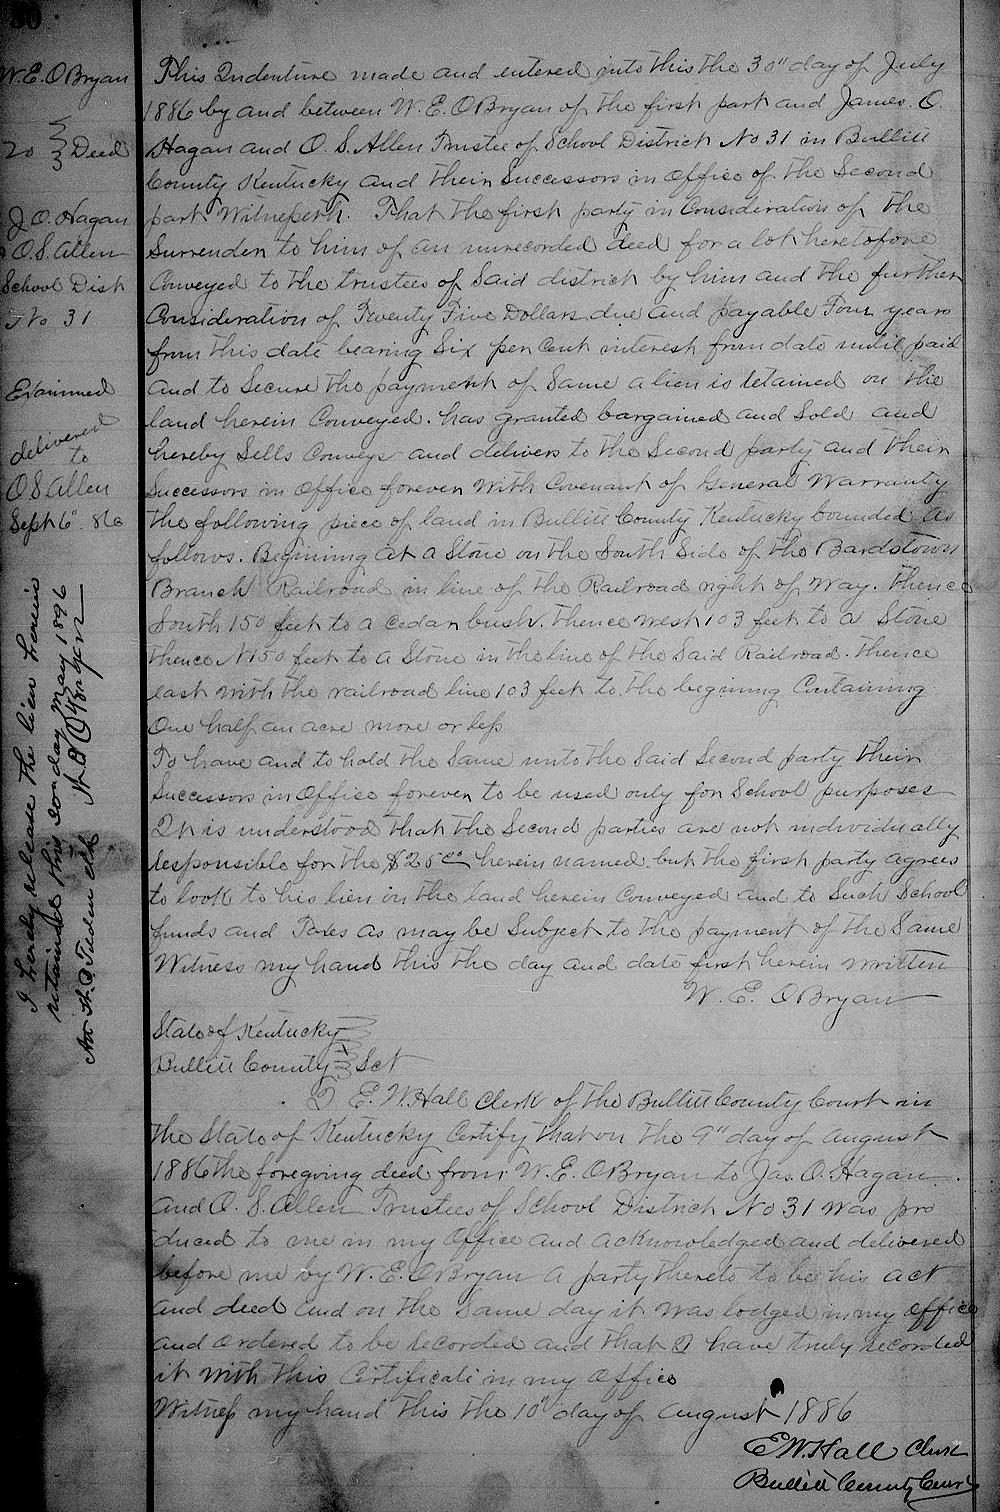 W. E. OBryan
To } Deed
J O. Hagan
& O. S. Allen
School Dist
No 31
Examined
delivered
to
O S Allen
Sept 6" 86
I hereby release the lien herein
retained this 2nd day May 1896
W E OBryan
Att H. O. Tilden clk
This Indenture made and entered into this the 30" day of July
1886 by and between W. E. OBryan of the first part and James. O.
Hagan and O. S. Allen Trustee of School District No 31 in Bullitt
County Kentucky and their Successors in office of the Second
part Witnesseth. That the first party in Consideration of the
Surrender to him of an unrecorded deed for a lot heretofore
Conveyed to the trustees of Said district by him and the further
Consideration of Twenty Five Dollars due and payable Four years
from this date bearing Six per Cent interest from date until paid
and to Secure the payment of Same a lien is retained on the
land herein Conveyed. has granted bargained and Sold and
hereby Sells Conveys and delivers to the Second party and their
Successors in office forever With Covenant of General Warranty
the following piece of land in Bullitt County Kentucky bounded as
follows. Begining at a Stone on the South Side of the Bardstown
Branch Railroad in line of the Railroad right of way. thence
South 150 feet to a Cedar bush. thence west 103 feet to a Stone
thence N 150 feet to a Stone in the line of the Said Railroad. thence
east with the railroad line 103 feet to the begning Containing
One half an acre more or less
To have and to hold the Same unto the Said Second party their
Successors in office forever to be used only for School purposes
It is understood that the Second parties are not individually
responsible for the $25 00 herein named but the first party agrees
to look to his lien on the land herein Conveyed and to Such School
funds and Taxes as may be Subject to the payment of the Same
Witness my hand this the day and date first herein written
W. E. OBryan
State of Kentucky }
Bullitt County } Sct
I E. W. Hall Clerk of the Bullitt County Court in
the State of Kentucky Certify that on the 9" day of August
1886 the foregoing deed from W. E. OBryan to Jas. O. Hagan
and O. S. Allen Trustees of School District No 31 was pro
duced to me in my office and acknowledged and delivered
before me by W. E. OBryan a party thereto to be his act
and deed and on the Same day it was lodged in my office
and ordered to be recorded and that I have truly recorded
it with this Certificate in my office
Witness my hand this the 10" day of August 1886
E W. Hall Clerk
Bullitt County Court